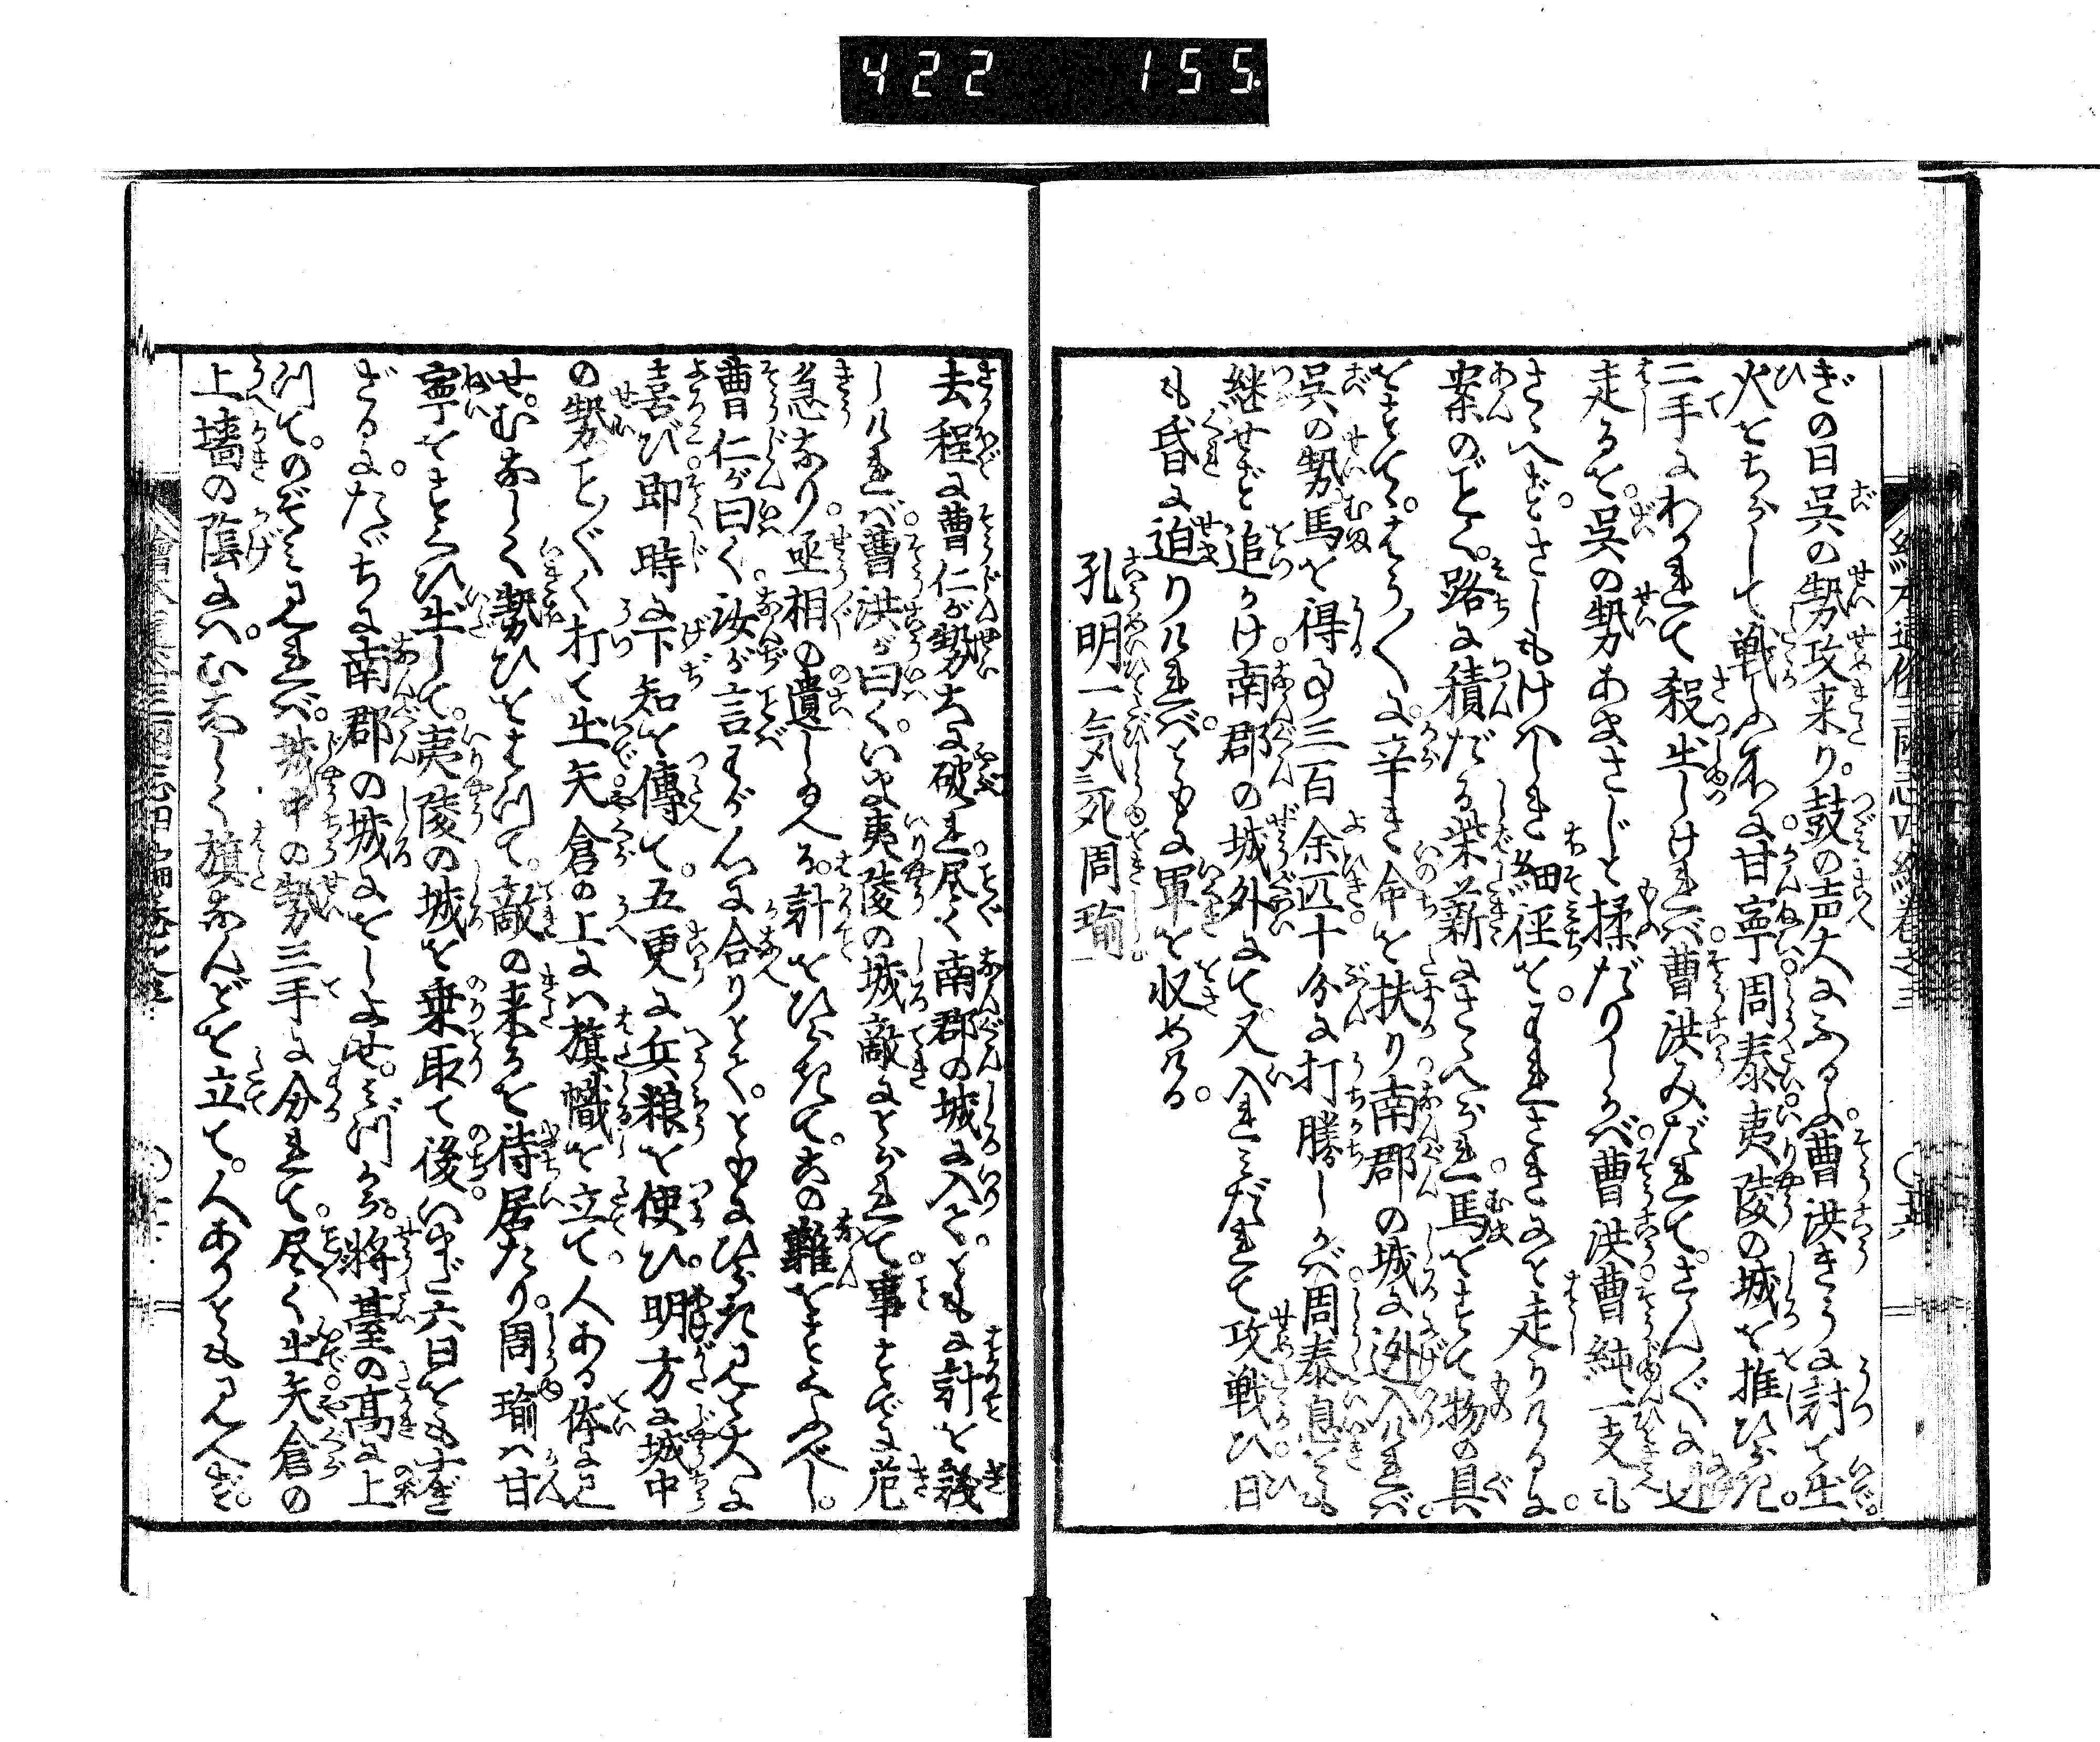 422 155
ぎの日呉の勢攻来り。鼓の声大にふるふ。曹洪きうに討て出。
火をちらして戦ふ所に。甘寧。周泰。夷陵の城を推ひらき。
二手にわかれて殺出しければ。曹洪みだれて。さん〴〵に迯
走るを。呉の勢あまさじと揉だりしかば。曹洪。曹純一支も
さゝへず。さしもけはしき細径を。われさきにと走りけるに。
案のごとく。路に積だる柴薪にさゝへられ。馬をすて物の具
をすてゝ。はう〳〵に。辛き命を扶り。南郡の城に迯入ければ。
呉の勢馬を得る事三百余匹。十分に打勝しかば。周泰息をも
継せず追かけ。南郡の城外にて。又入れみだれて攻戦ひ。日
も昏に迫りければ。ともに軍を収めける。
孔明一気死周瑜
去程に曹仁が勢大に破れ。尽く南郡の城に入て。ともに計を議
しければ。曹洪が曰く。いま夷陵の城敵にとられて。事すでに危
急なり。丞相の遺し給へる。計をひらきて。此の難をすくふべし。
曹仁が曰く。汝が言わが心に合りとて。ともにひらき見て大に
喜び。即時に下知を傳て。五更に兵粮を使ひ。明方に城中
の勢こと〴〵く打て出。矢倉の上には旗幟を立て。人ある体に見
せ。むなしく勢ひをはつて。敵の来るを待居たり。周瑜は甘
寧をすくひ出して。夷陵の城を乗取て後。いまだ六日をもすぎ
ざるに。たゞちに南郡の城にをしよせ。みづから。將臺の高に上
つて。のぞみ見れば。城中の勢三手に分れて。尽く出。矢倉の
上墻の陰には。むなしく旗なんどを立て。人ありとも見へず。